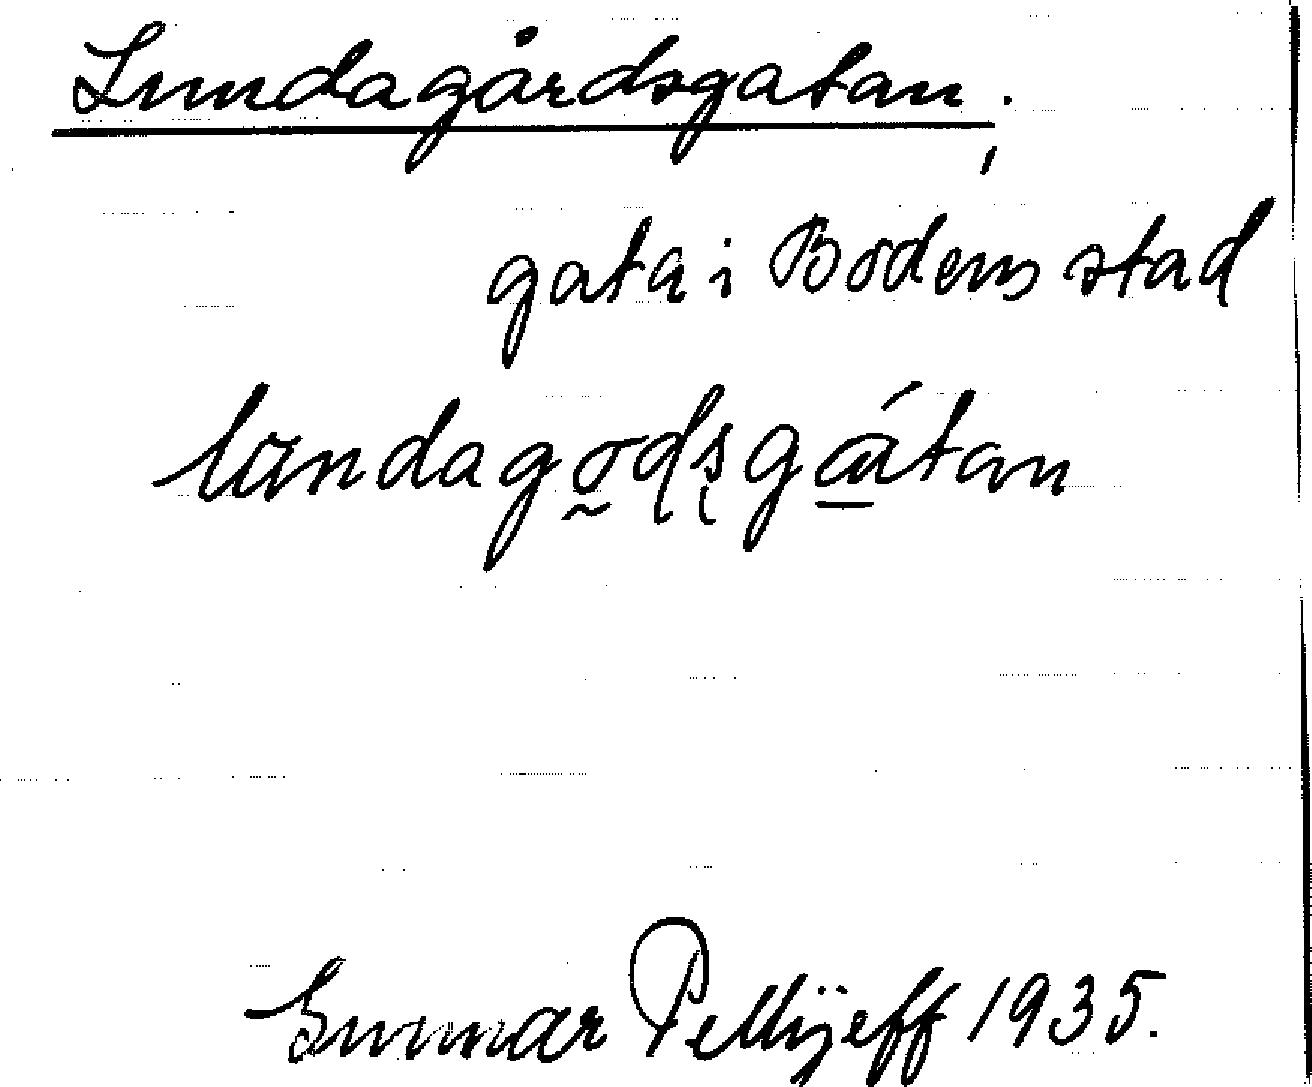 Lundagårdsgatan.
gata i Bodens stad
lundagodsgátan
Gunnar Pellijeff 1935.